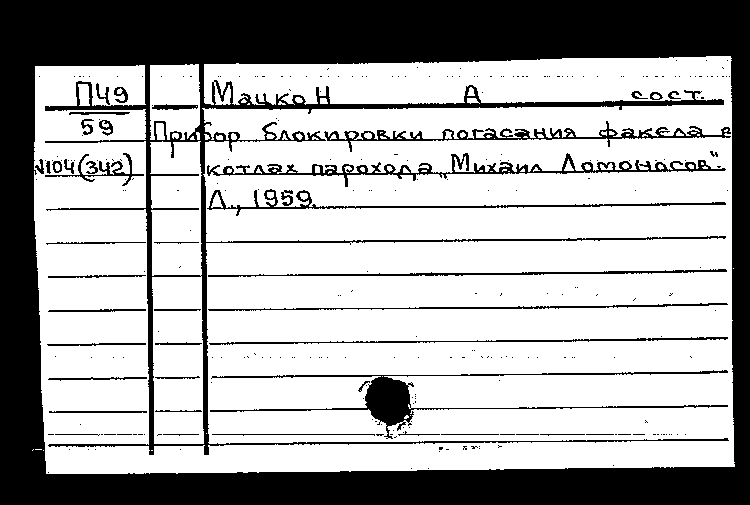 П49 Мацко, Н А , сост.
59 Прибор блокировки погасания факела в
N104(342) котлах парохода „Михаил Ломоносов".
Л., 1959.